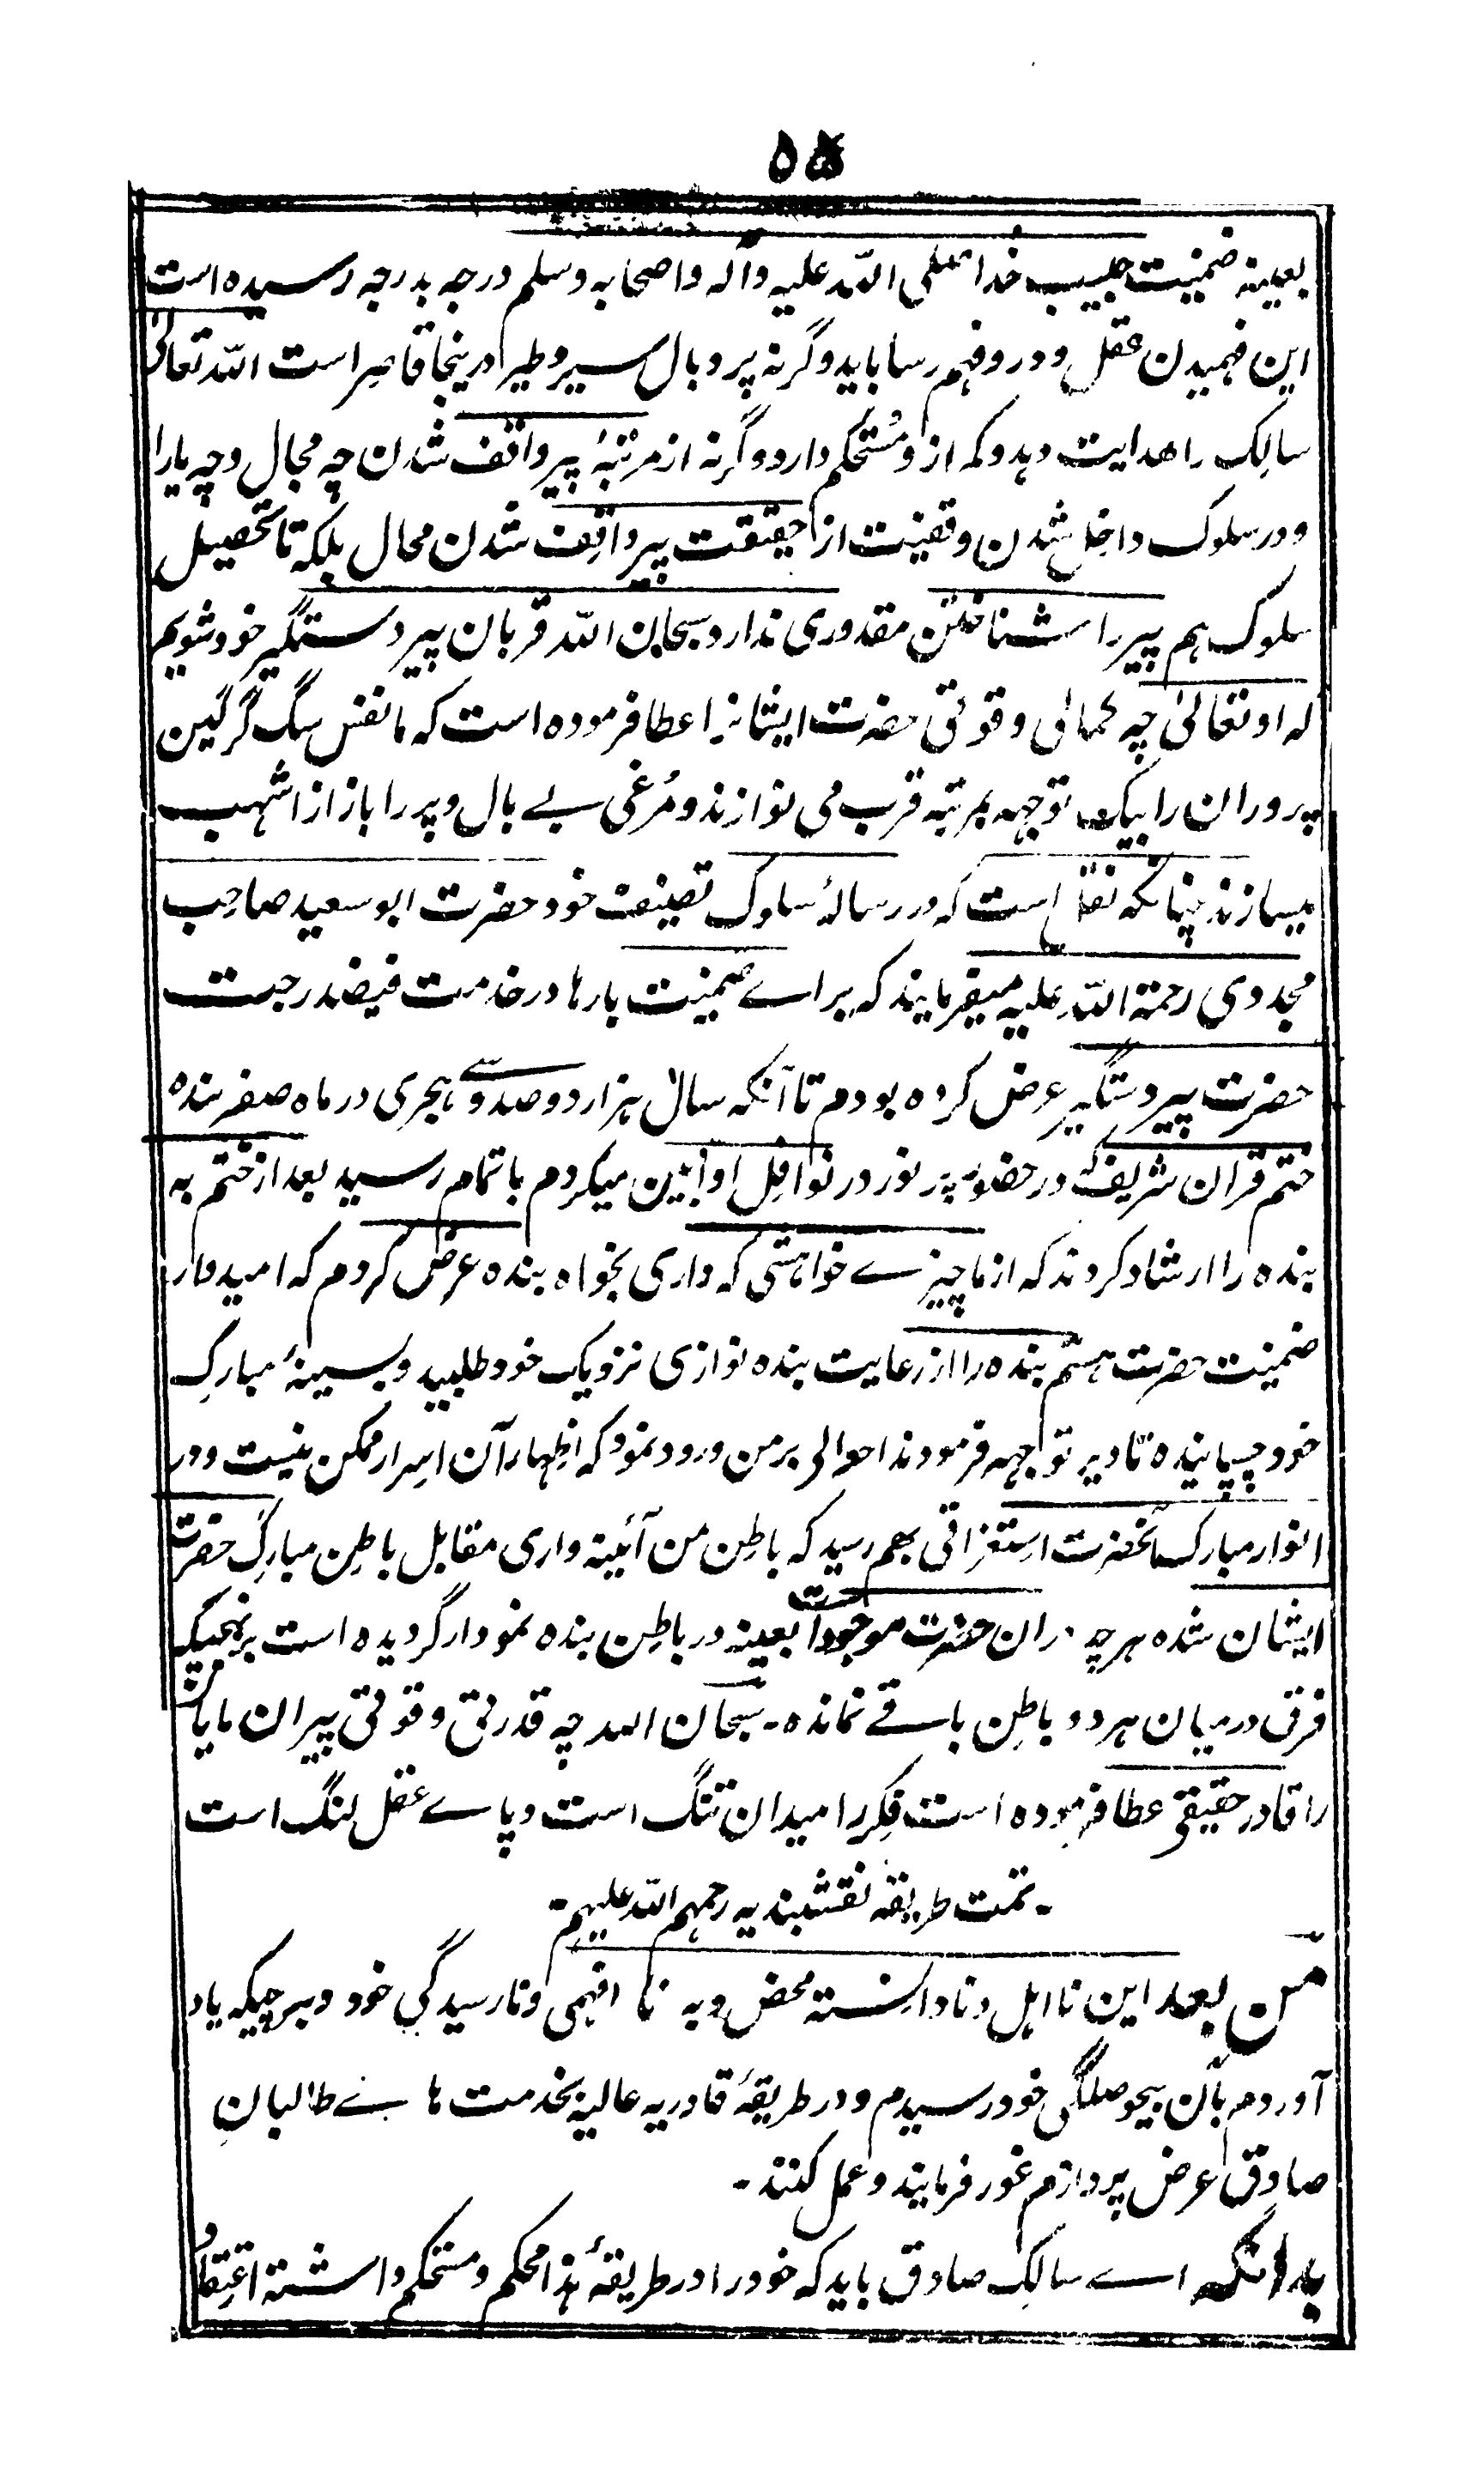 ۵۵
بعینه ضمنیت حبیب خدا صلی اللہ علیه وآله واصحابه وسلم درجه بدرجه رسیده است
این فهمیدن عقل و در وفهم رسا باید وگرنه پر و بال سیر وطیر درینجا قاصر است اللہ تعالیٰ
سالک را هدایت دهد وکمه ازو مُستحکم دارد وگرنه از مرتبۂ پیر واقف شدن چه مجال وچه یارا
و در سلوک داخل شدن وقفیت از حقیقت پیر واقِف شدن محال بلکه تا تحصیل
سلوک هم پیر را شناختن مقدوری ندارد سبحان اللہ قربان پیر دستگیر خود شویم
که او تعالیٰ چه کمالی وقوتی حضرت ایشانرا عطا فرموده است که ما نفس سگ گرگین
پروران را بیک توجهه بمرتبه قرب می نوازند و مُرغی بے بال وپر را باز از اشهب
میسازند چنانکه نقل است که در رسالۂ سلوک تصنیف خود حضرت ابو سعید صاحب
مجددی رحمة اللہ علیه میفرمایند که براے ضمنیت بارها در خدمت فیضدرجت
حضرت پیر دستگیر عرض کرده بودم تا آنکه سال هزار دو صد وسے هجری در ماه صفر بنده
ختم قران شریف که در حضور پر نور در نوافِل اوّابین میکردم باتمام رسید بعد از ختم به
بنده را ارشاد کردند که از ما چیزے خواهشی که داری بخواه بنده عرض کردم که امیدوار
ضمنیت حضرت هستم بنده را از رعایت بنده نوازی نزدیک خود طلبید وبسینۂ مبارکِ
خود چسپانیده تا دیر توجهه فرمودند احوالی بر من ورود نمود که اظهار آن اسرار ممکن نیست ودر
انوار مبارک آنحضرت استغراقی بهم رسید که باطن من آئینه واری مقابل باطِن مبارکِ حضرت
ایشان شده هر چه دران حضرت موجود است بعینه در باطِن بنده نمودار گردیده است بر نهجیکه
فرق درمیان هر دو باطِن باقے نمانده - سبحان اللہ چه قدرتی و قوتی پیران مایان
را قادر حقیقی عطا فرموده است فِکر را میدان تنگ است و پاے عقل لنگ است
- تمت طریقه نقشبندیه رحمهم اللہ علیهم -
من بعد این نااهل ونادانسته محض وبه نافهمی ونارسیدگی خود وهر چیکه یاد
آوردم بآن بیحوصلگی خود رسیدم ودر طریقۂ قادریه عالیه بخدمت ها ئے طالبانِ
صادق عرض پردازم غور فرمایند وعمل کنند -
بدانکه اے سالک صادق باید که خود را در طریقۂ هذا محکم ومستحکم داشته اعتقاد